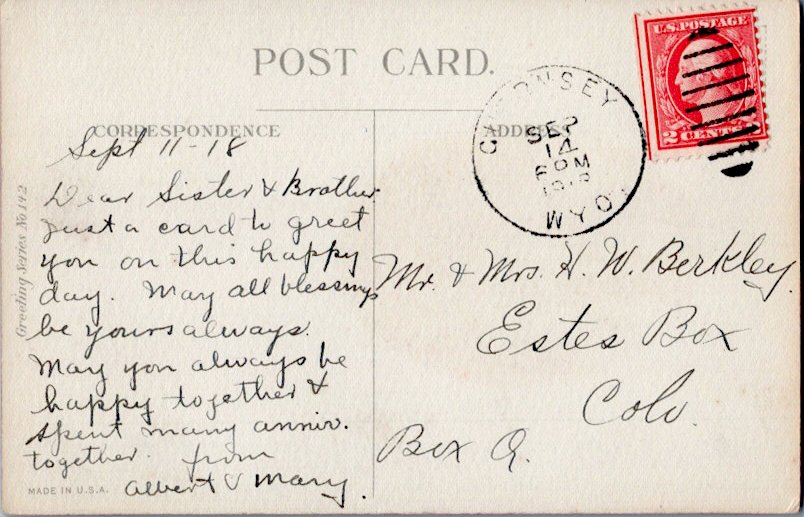 POST CARD.
CORRESPONDENCE
ADDRESS
U.S. POSTAGE
2 CENTS 2
GUERNSEY
SEP
14
6 PM
1918
WYO.
Sept 11-18
Dear Sister & Brother
Just a card to greet
you on this happy
day. May all blessings
be yours always.
May you always be
happy together &
spent many anniv.
together. from
Albert & Mary.
Mr. & Mrs. H. W. Berkley.
Estes Box
Colo.
Box Q.
Greeting Series No 142
MADE IN U.S.A.